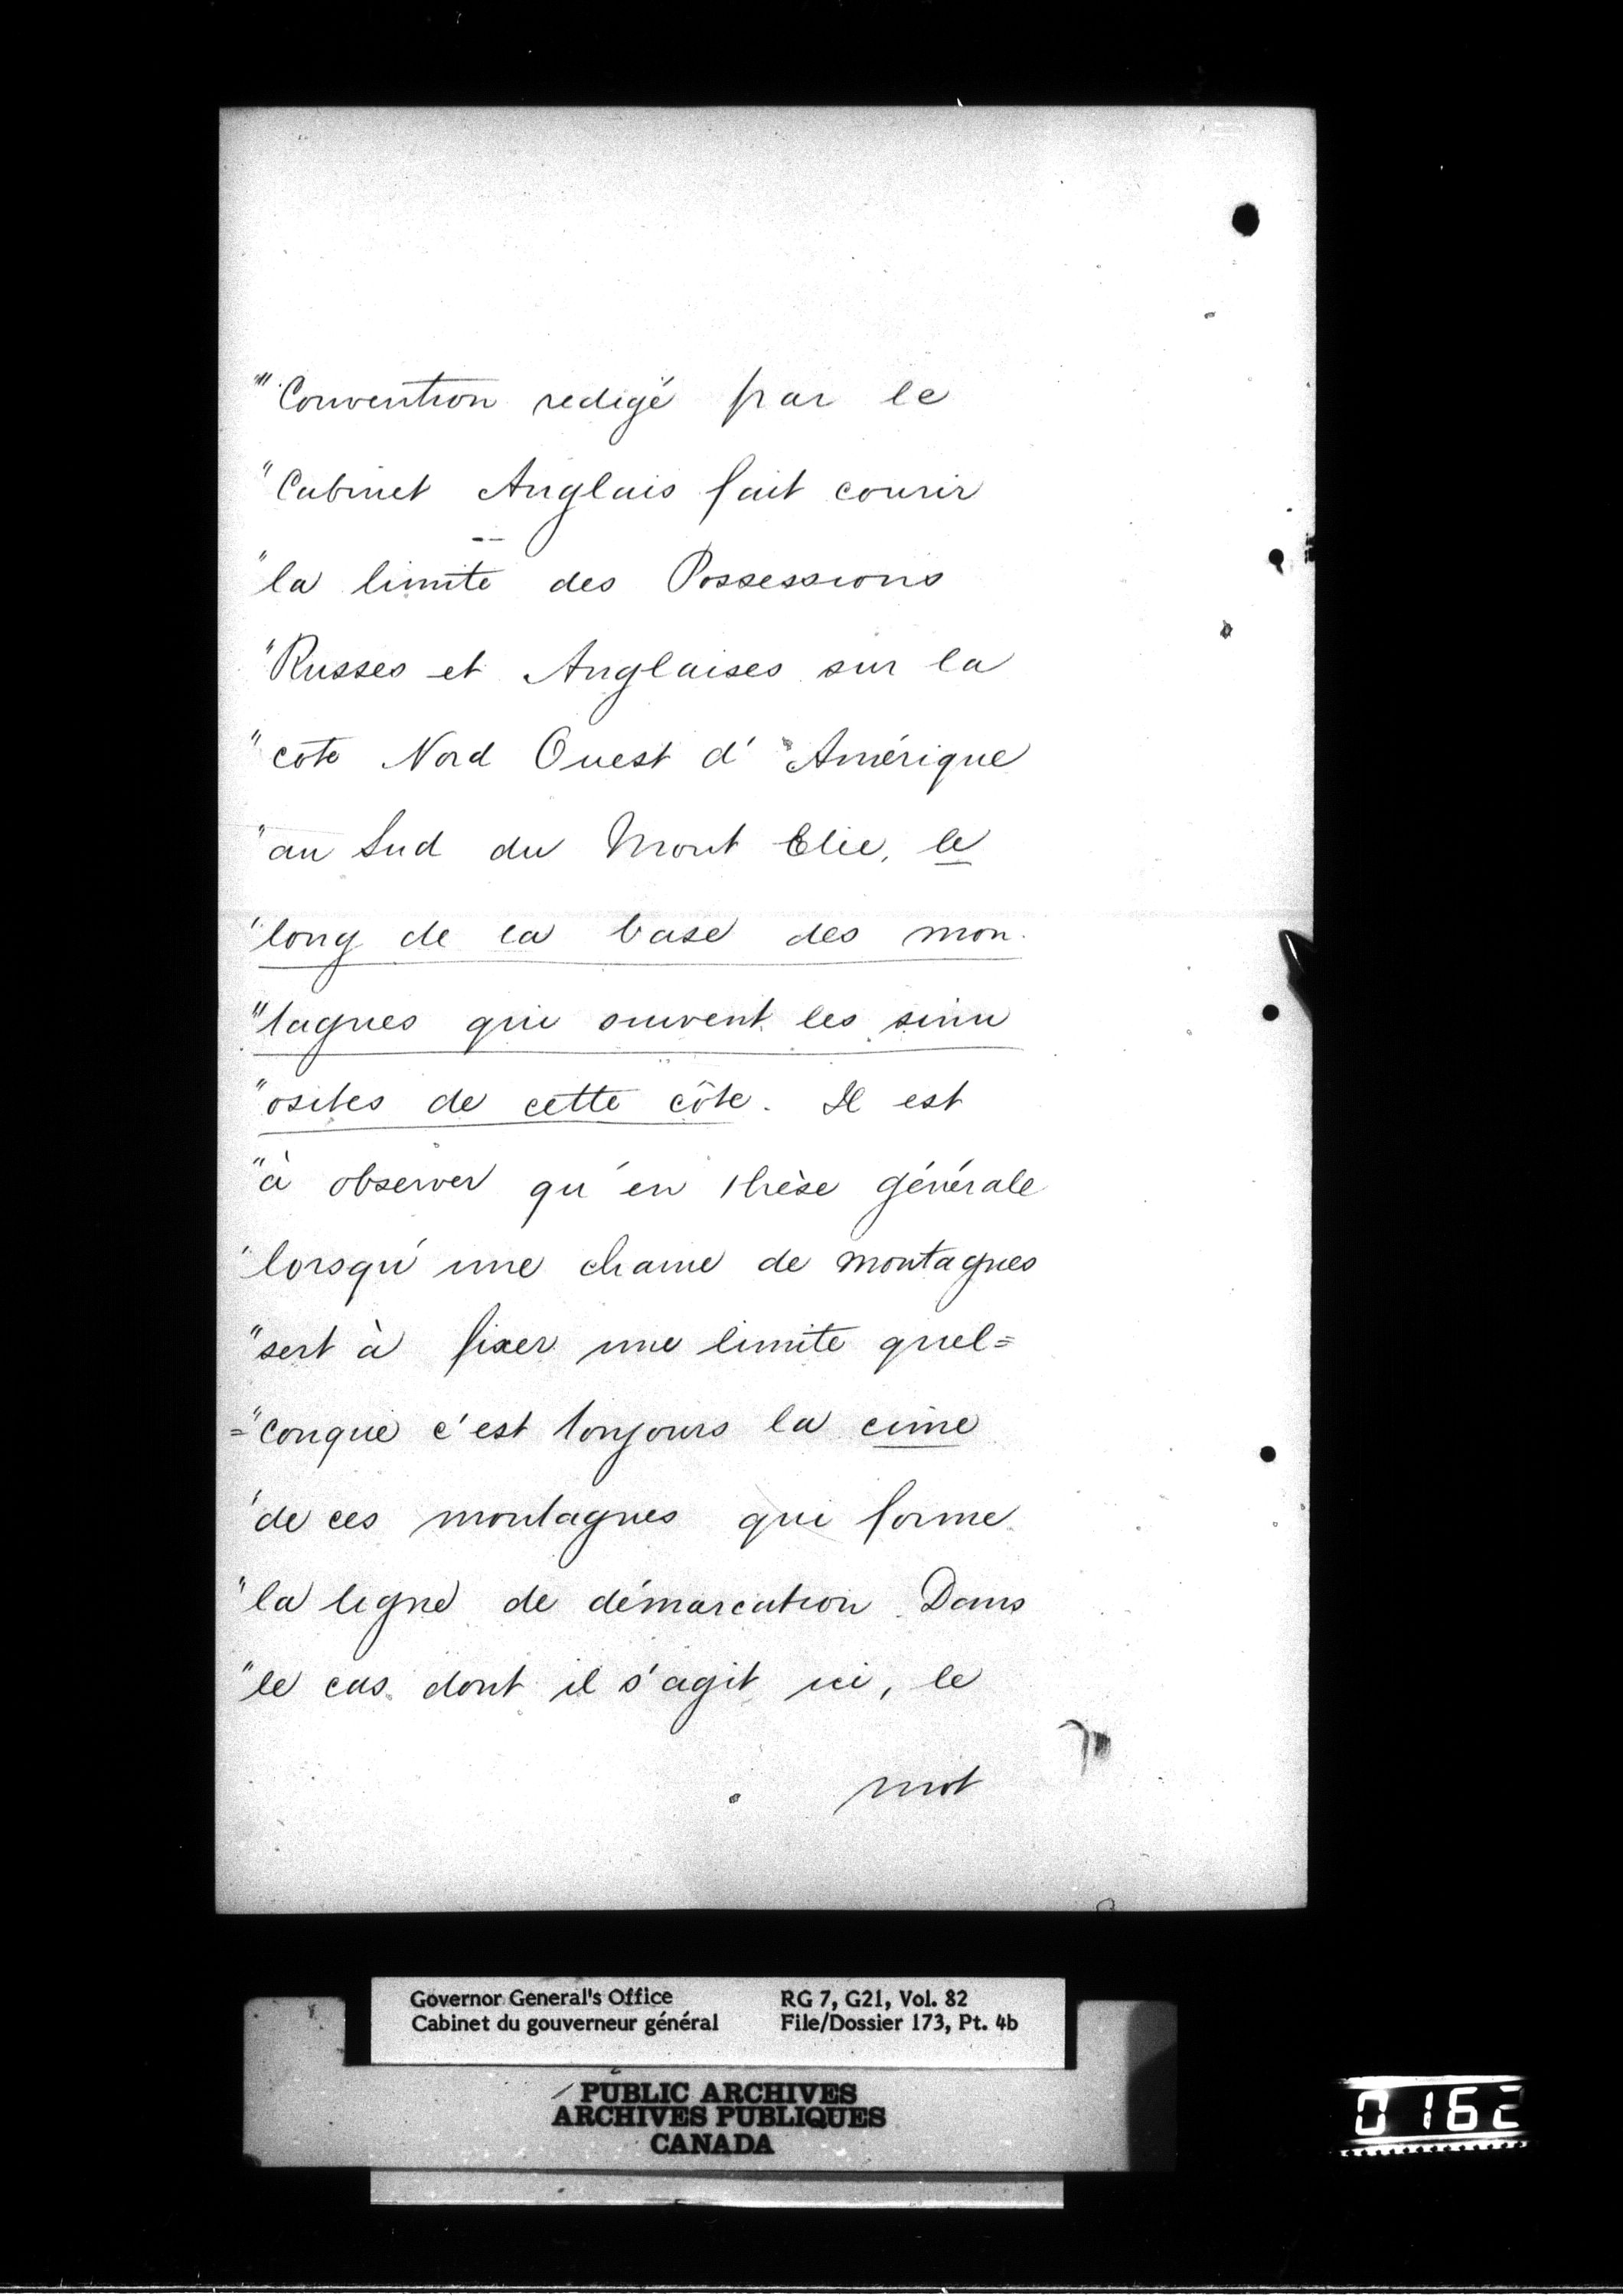 "'Convention redigé par le
"Cabinet Anglais fait courir
"la limite des Possessions
"Russes et Anglaises sur la
"côte Nord Ouest d'Amérique
"au Sud du Mont Elie, le
"long de la base des mon-
"tagnes qui suivent les sinu
"osites de cette côte. Il est
"à observer qu'en thèse générale
"lorsqu'une chaine de montagnes
"sert à fixer une limite quel=
="conque c'est toujours la cime
"de ces montagnes qui forme
"la ligne de démarcation. Dans
"le cas dont il s'agit ici, le
mot
Governor General's Office RG 7, G21, Vol. 82
Cabinet du gouverneur général File/Dossier 173, Pt. 4b
PUBLIC ARCHIVES
ARCHIVES PUBLIQUES
CANADA
0162